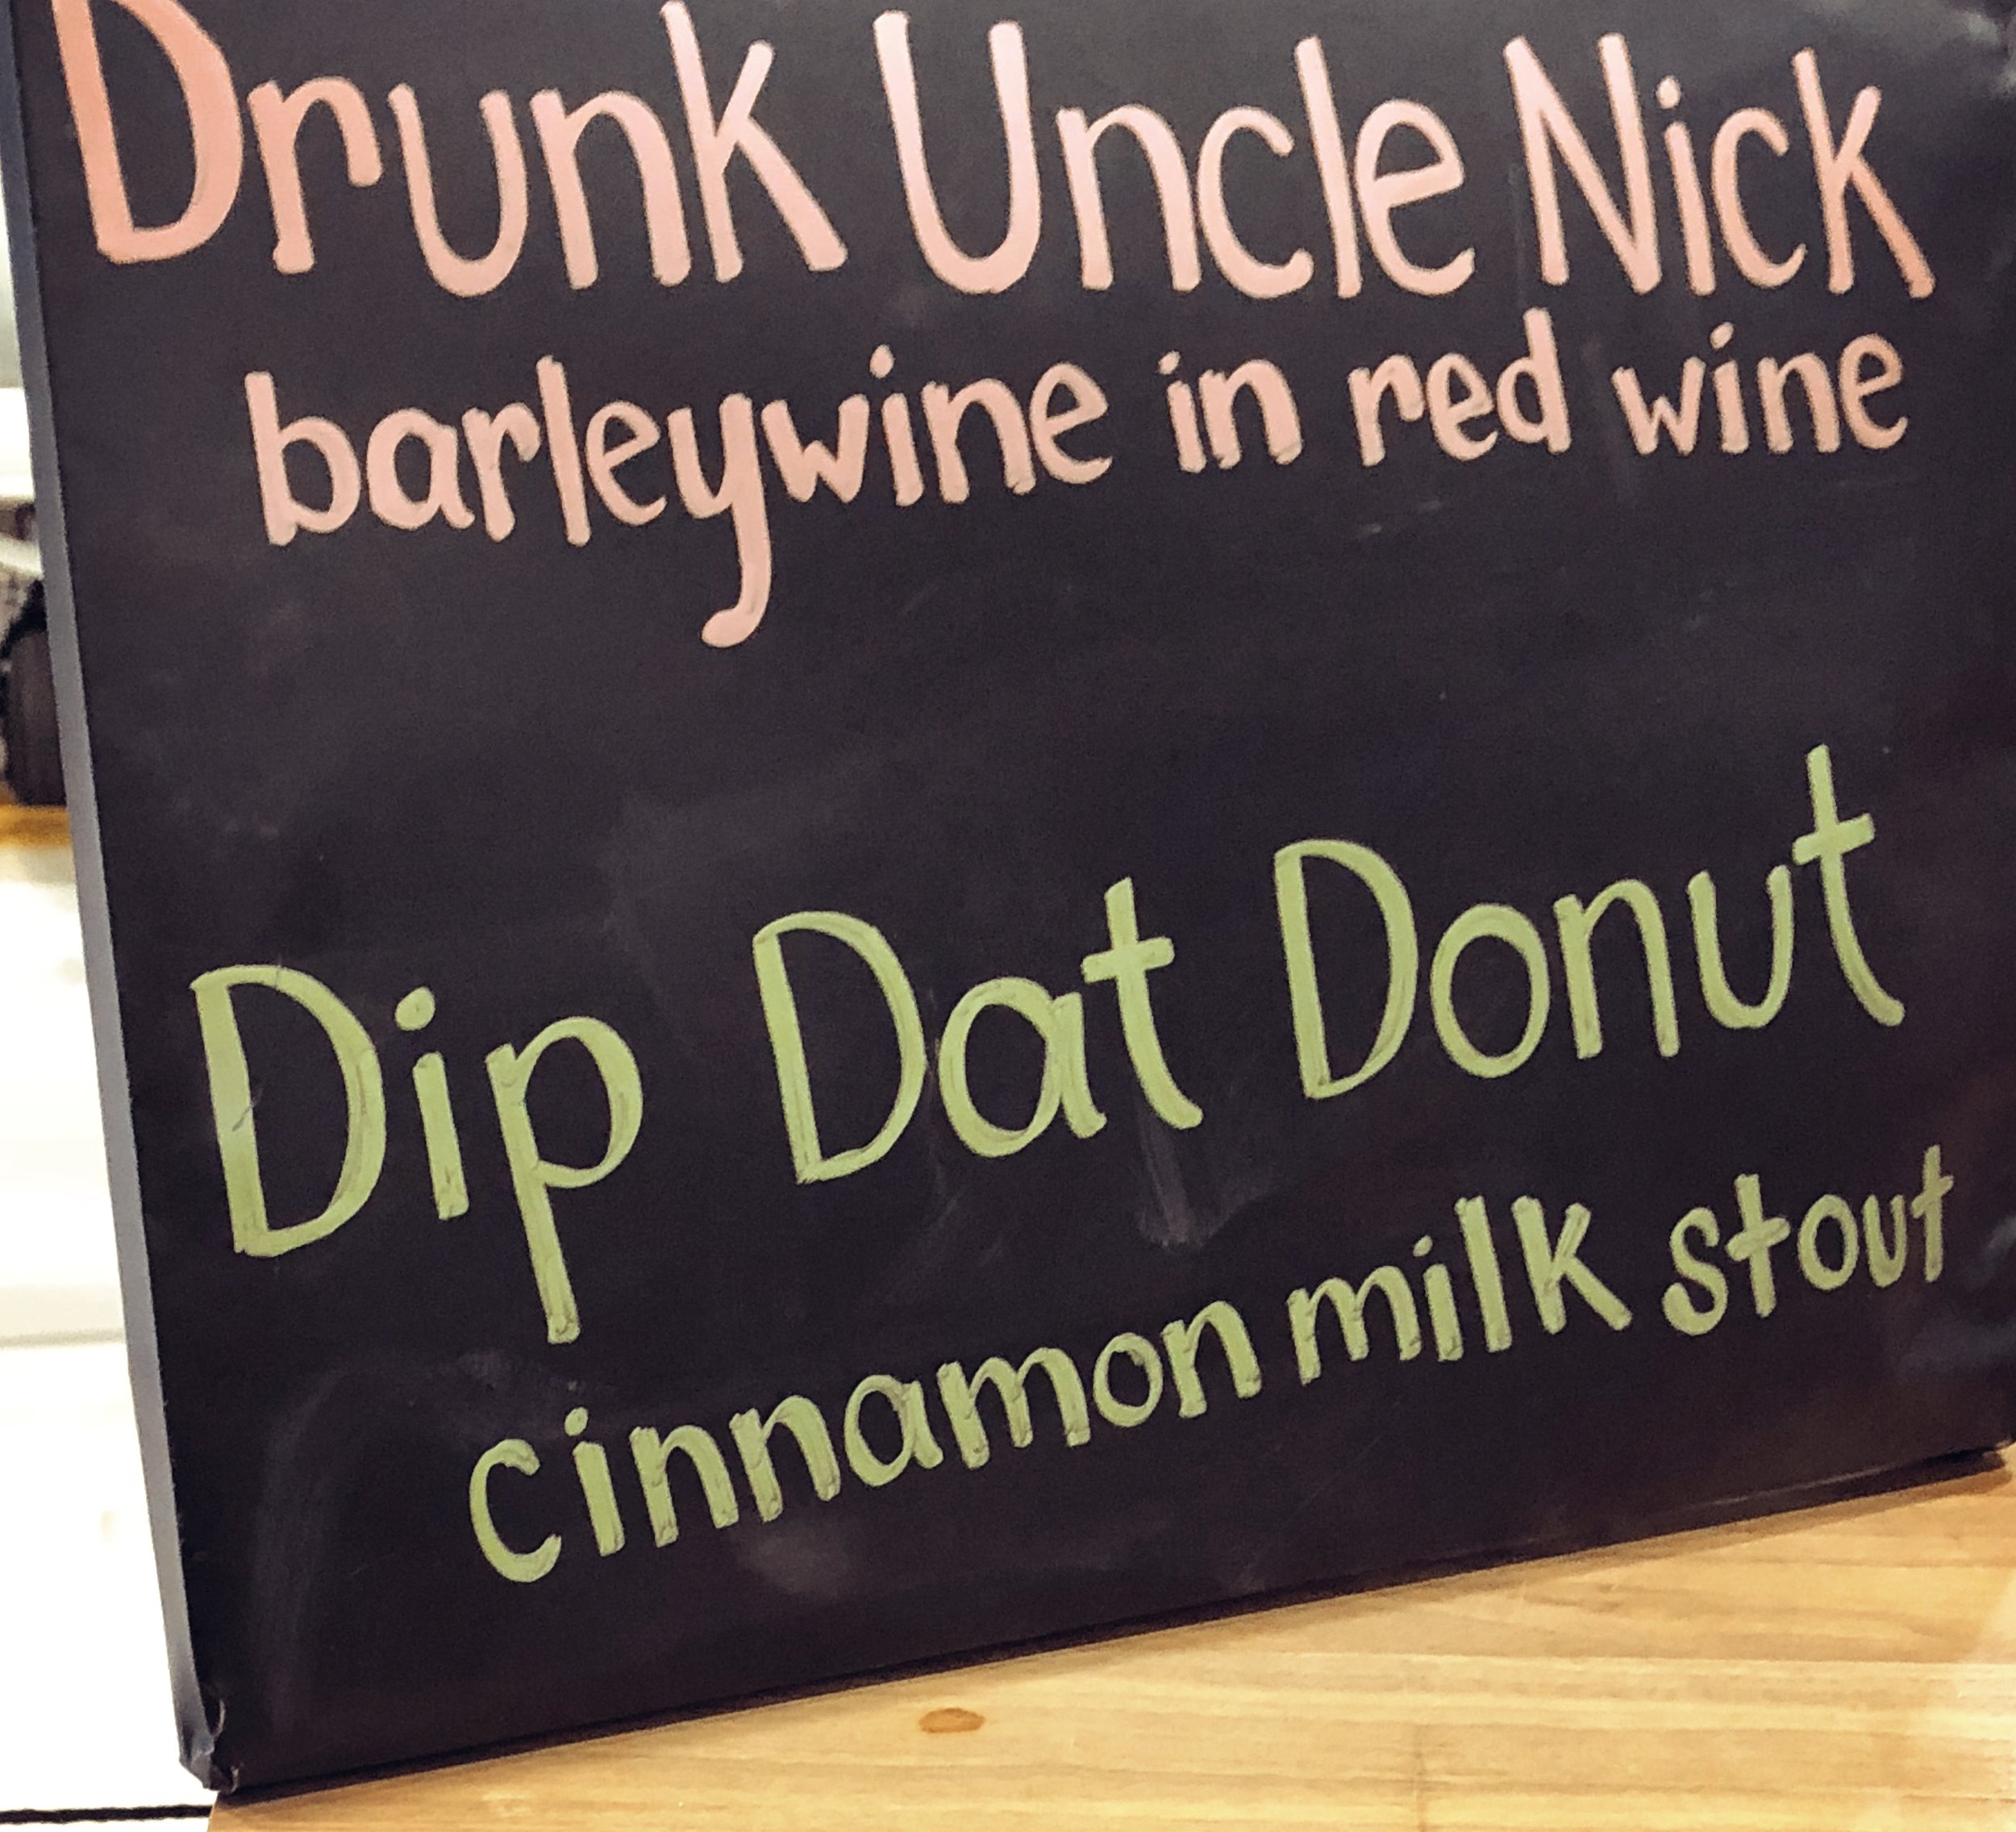 Drunk Uncle Nick
barleywine in red wine
Dip Dat Donut
cinnamon milk stout